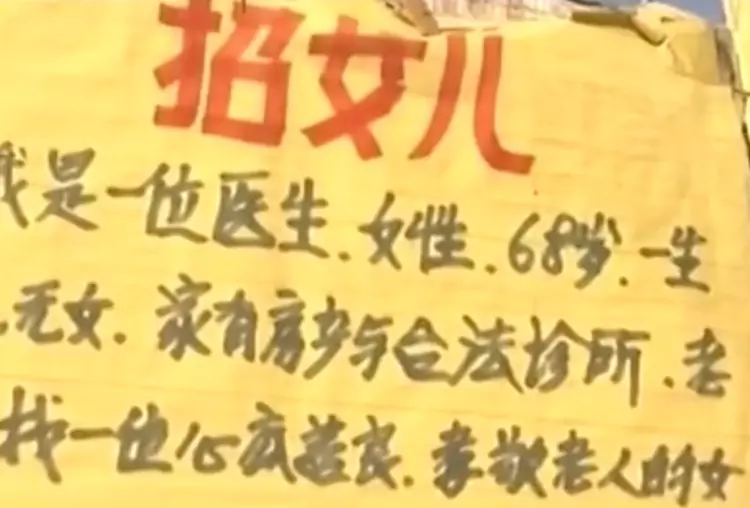 招女儿
我是一位医生、女性、68岁、一生
无女、家有房产与合法诊所、老
找一位心底善良、孝敬老人的女